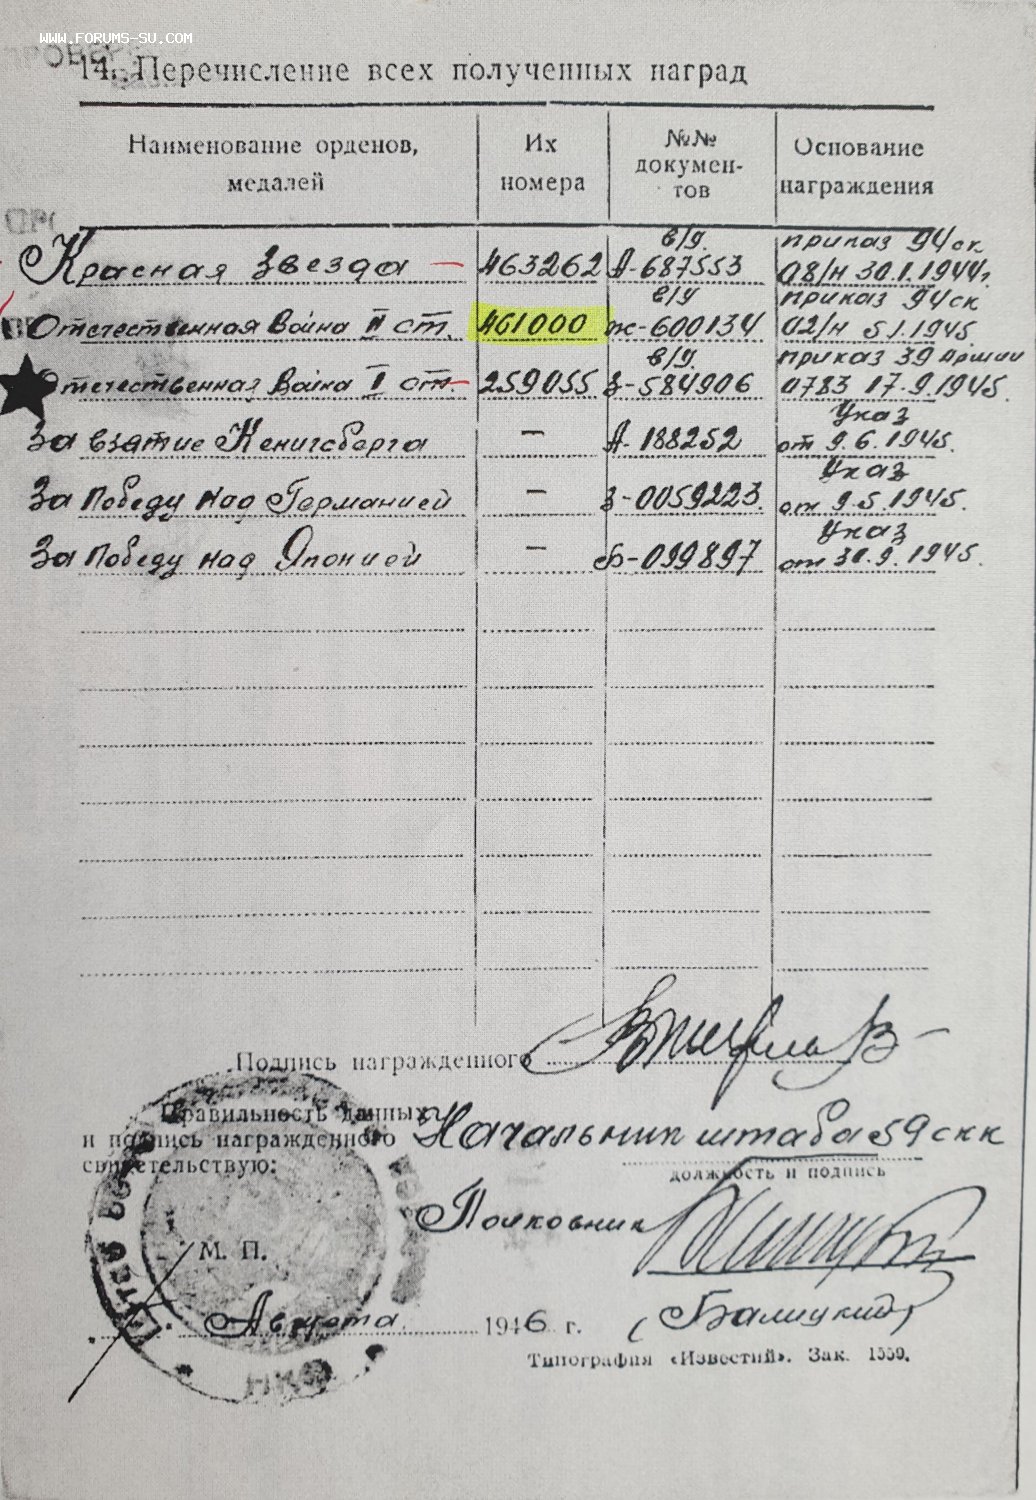 WWW.FORUMS-SU.COM
14. Перечисление всех полученных наград
Наименование орденов, медалей
Их номера
№№ документов
Основание награждения
в/у. приказ 94 ск
Красная Звезда — 463262 А-687553 08/н 30.1.1944г.
в/у приказ 94 ск
Отечественная Война II ст. 461000 Ж-600134 02/н 5.1.1945.
в/у. приказ 39 Армии
Отечественная Война I ст. — 259055 З-584906 0783 17.9.1945.
Указ
За взятие Кенигсберга — А-188252 от 9.6.1945.
Указ
За Победу над Германией — З-0059223. от 9.5.1945.
Указ
За Победу над Японией — Б-099897 от 30.9.1945.
Подпись награжденного
Правильность данных
и подпись награжденного Начальник штаба 59 скк
свидетельствую:
должность и подпись
Полковник
М. П.
Августа 1946 г. (Балицкий)
Типография «Известий». Зак. 1559.